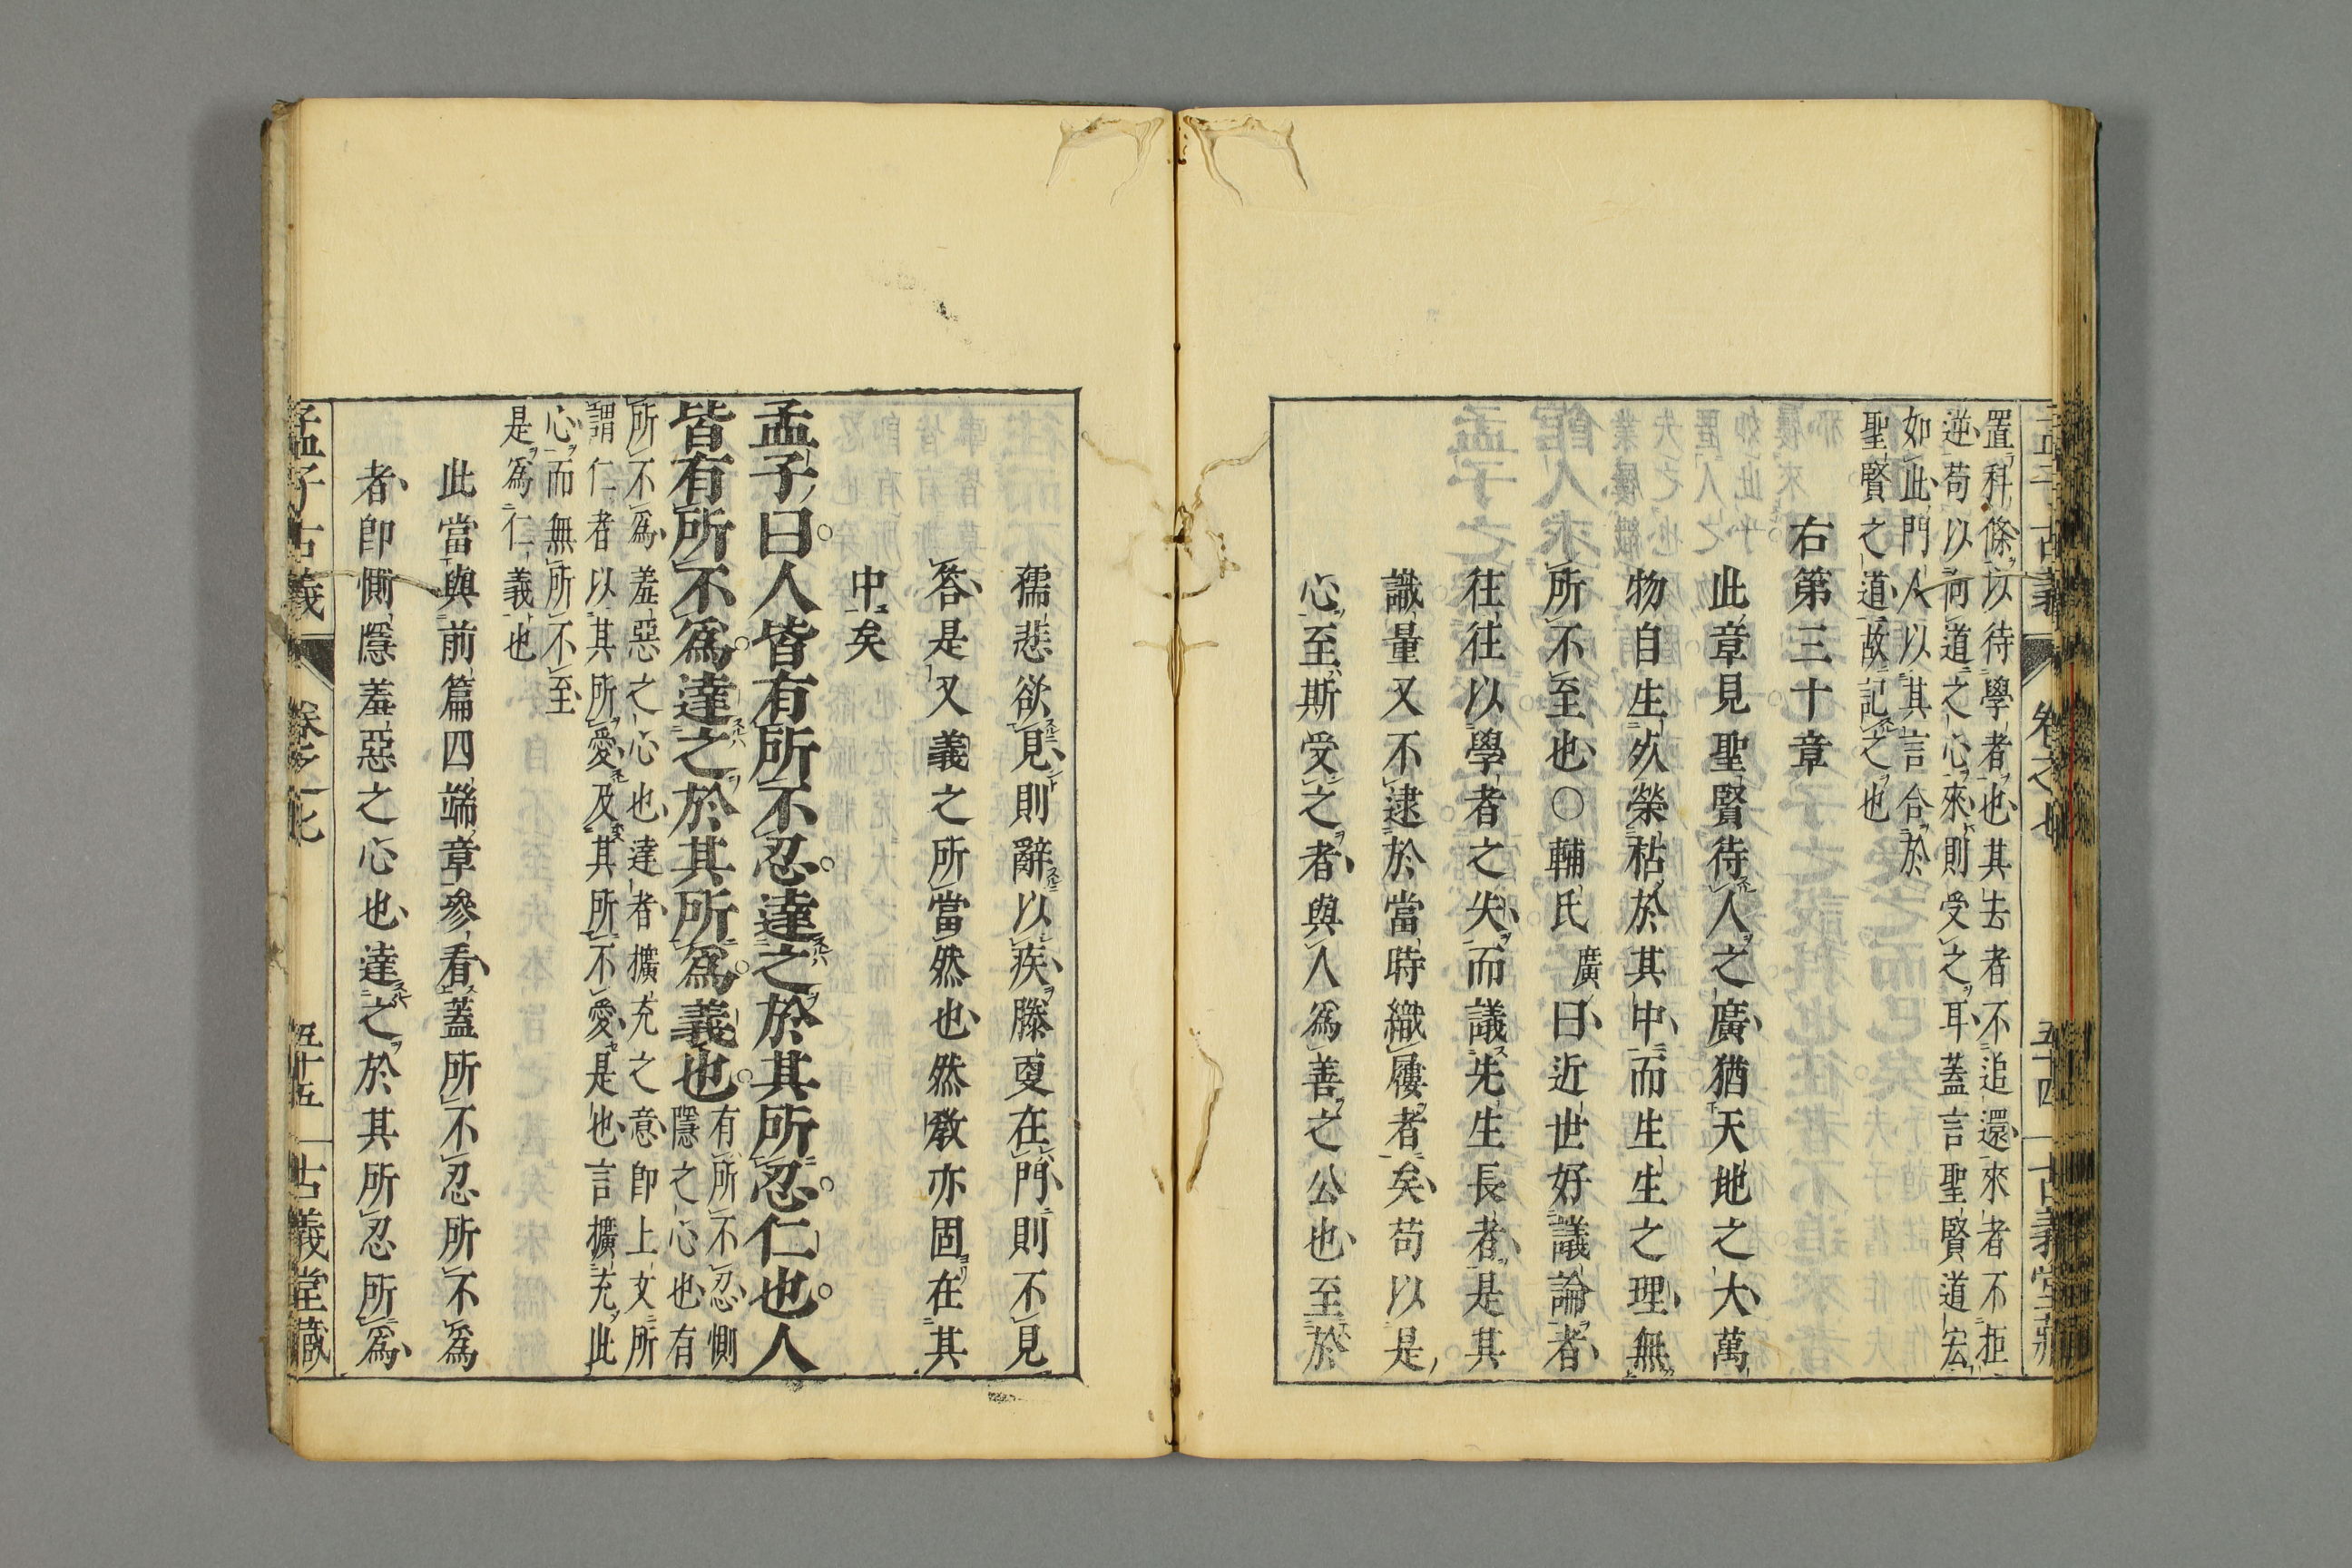 孟子古義 卷之七 五十四 古義堂藏
置科條以待學者也其去者不追還來者不拒
逆苟以向道之心來則受之耳蓋言聖賢道宏
如此門人以其言合於
聖賢之道故記之也
右第三十章
此章見聖賢待人之廣猶天地之大萬
物自生自榮枯於其中而生生之理無
所不至也○輔氏廣曰近世好議論者
往往以學者之失而議先生長者是其
識量又不逮於當時織屨者矣苟以是
心至斯受之者與人為善之公也至於
孺悲欲見則辭以疾滕更在門則不見
答是又義之所當然也然教亦固在其
中矣
孟子曰人皆有所不忍達之於其所忍仁也人
皆有所不爲達之於其所爲義也
有所不忍惻
隱之心也有
所不爲羞惡之心也達者擴充之意即上文所
謂仁者以其所愛及其所不愛是也言擴充此
心而無所不至
是爲仁義也
此當與前篇四端章參看蓋所不忍所不爲
者即惻隱羞惡之心也達之於其所忍所爲
孟子古義 卷之七 五十五 古義堂藏